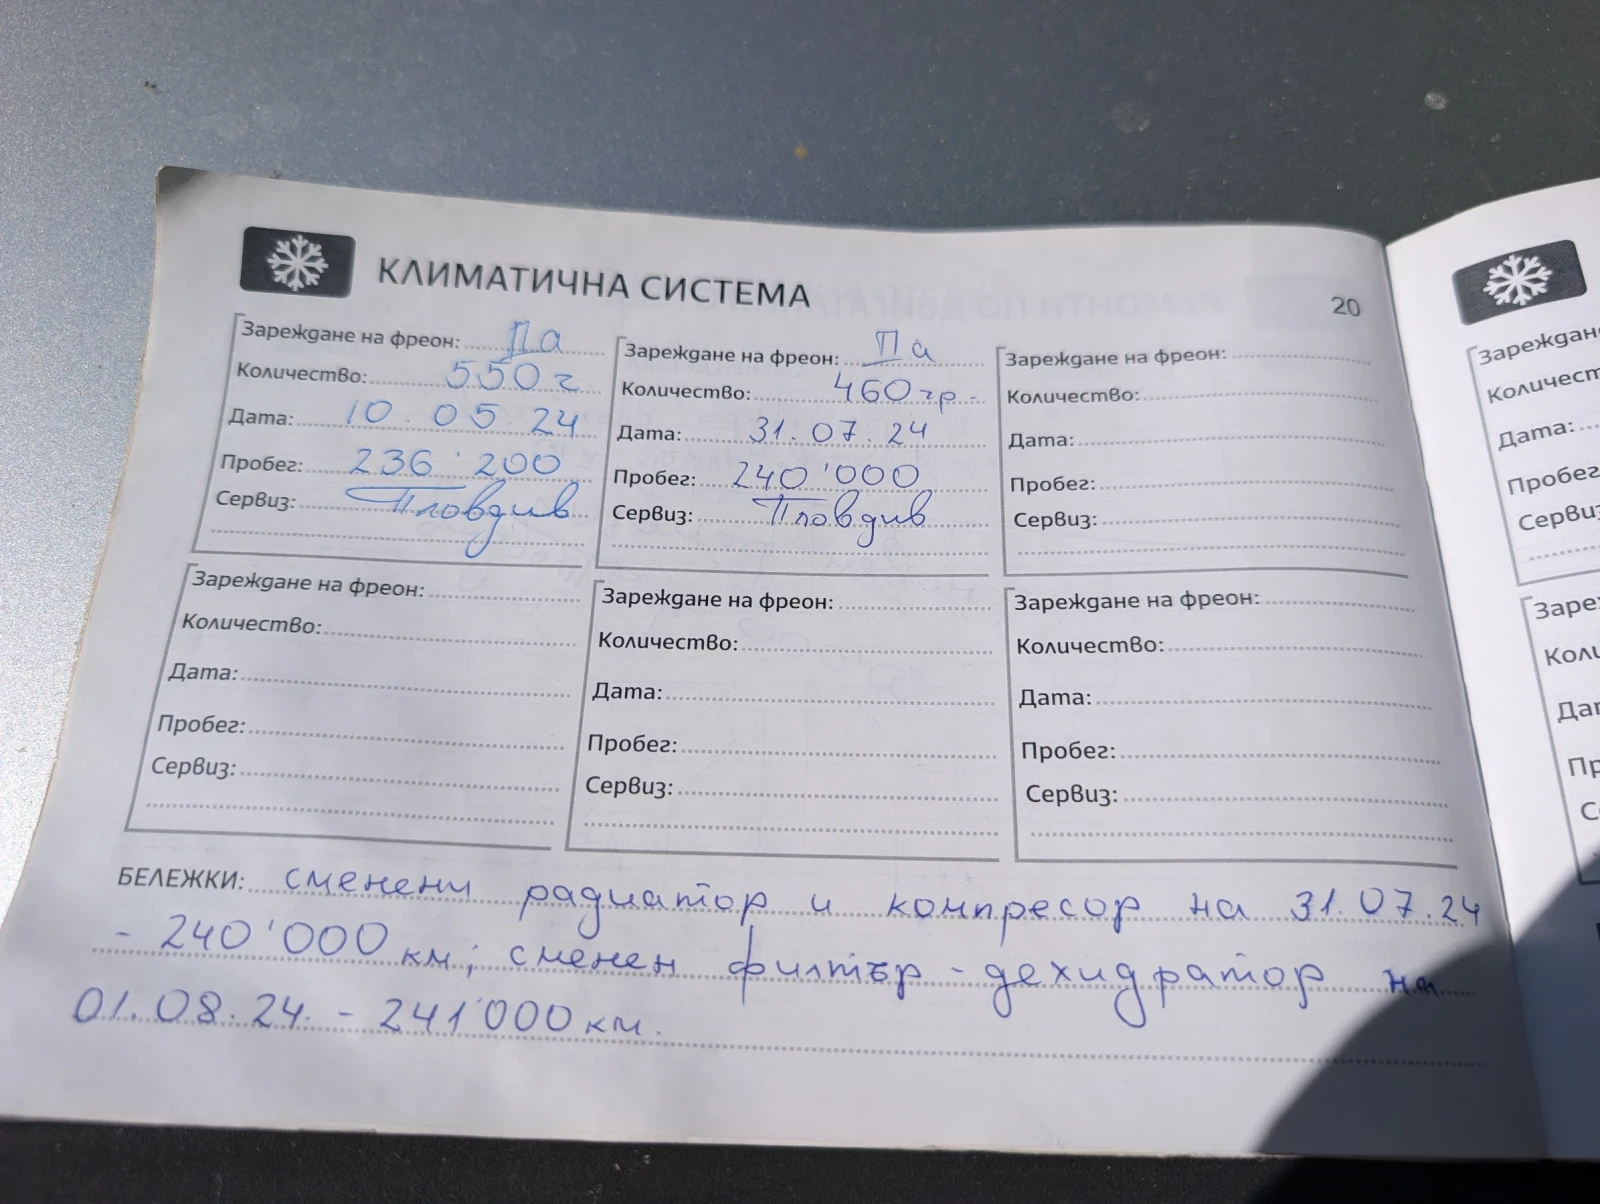 КЛИМАТИЧНА СИСТЕМА
20
Зареждане на фреон: Да
Количество: 550 г
Дата: 10.05.24
Пробег: 236'200
Сервиз: Пловдив
Зареждане на фреон: Да
Количество: 460 гр.
Дата: 31.07.24
Пробег: 240'000
Сервиз: Пловдив
Зареждане на фреон:
Количество:
Дата:
Пробег:
Сервиз:
Зареждане на фреон:
Количество:
Дата:
Пробег:
Сервиз:
Зареждане на фреон:
Количество:
Дата:
Пробег:
Сервиз:
Зареждане на фреон:
Количество:
Дата:
Пробег:
Сервиз:
БЕЛЕЖКИ: сменени радиатор и компресор на 31.07.24
- 240'000 км; сменен филтър - дехидратор на
01.08.24. - 241'000 км.